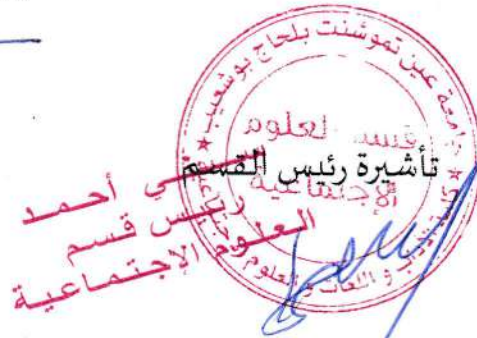 جامعة عين تموشنت بلحاج بوشعيب
قسم العلوم
الإجتماعية
تأشيرة رئيس القسم
أحمد
رئيس قسم
العلوم الإجتماعية
كلية الآداب و اللغات و العلوم الإجتماعية